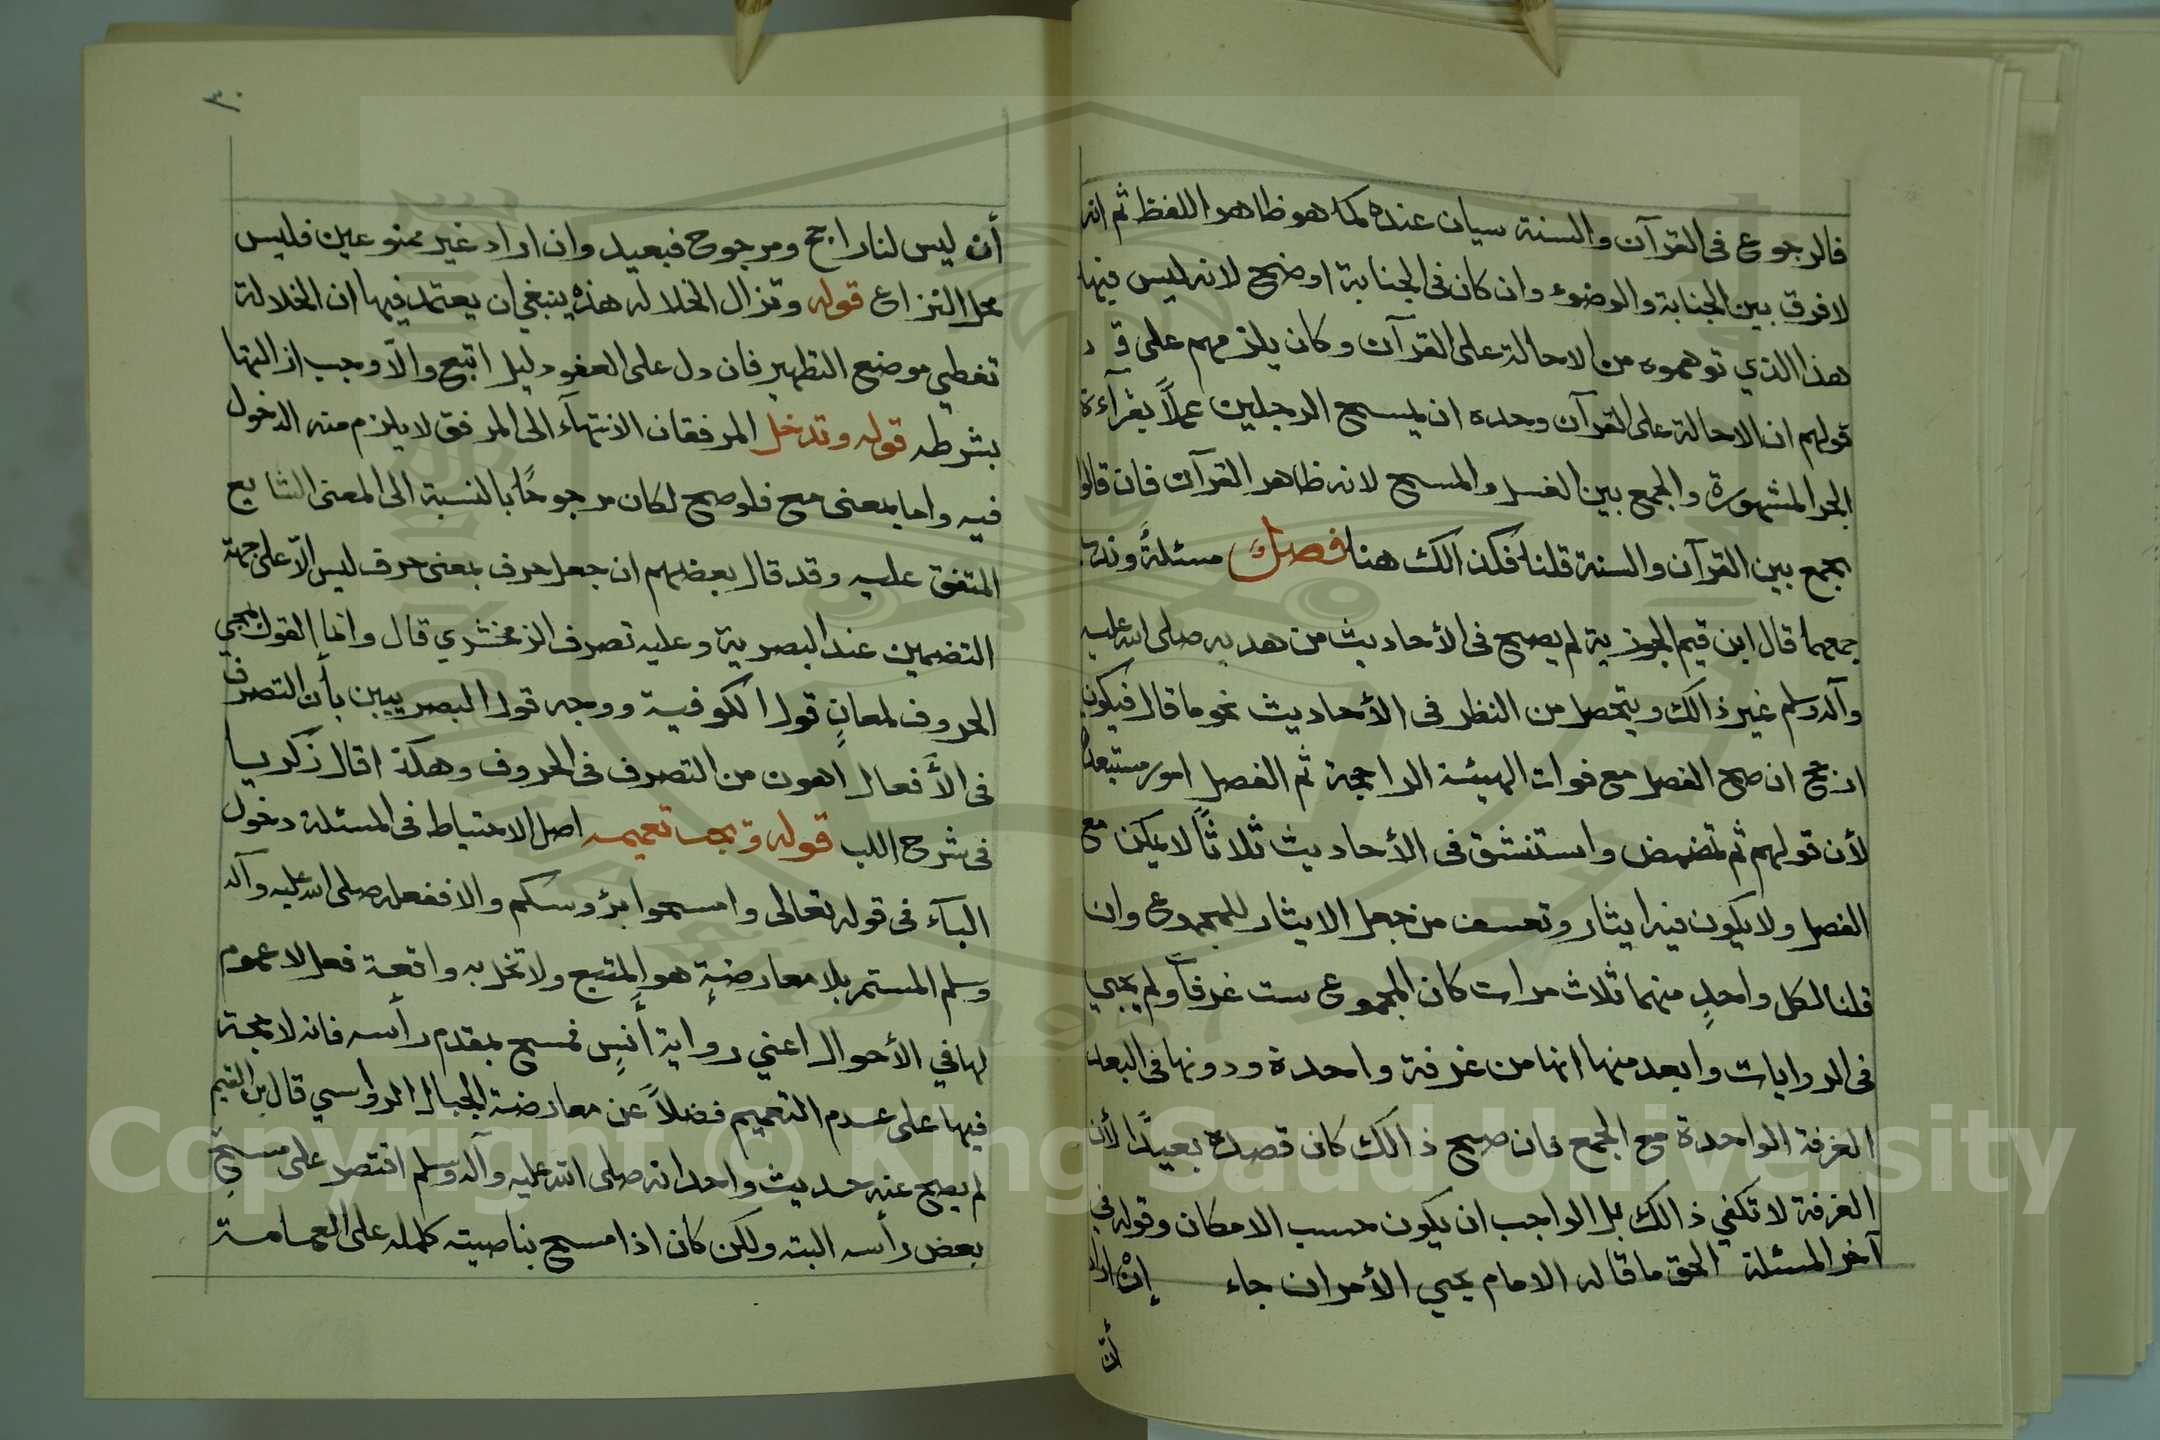 فالرجوع فى القرآن والسنة سيان عنده كما هو ظاهر اللفظ ثم انه
لا فرق بين الجنابة والوضوء وان كان فى الجنابة اوضح لانه ليس فيها
هذا الذي توهموه من الاحالة على القرآن وكان يلزمهم على
قولهم ان الاحالة على القرآن وحده ان يمسح الرجلين عملاً بقرآءة
الجر المشهورة والجمع بين الغسل والمسح لانه ظاهر القرآن فان قالوا
يجمع بين القرآن والسنة قلنا فكذالك هنا فصل مسئلةً وندب
جمعهما قال ابن قيم الجوزية لم يصح فى الأحاديث من هديه صلى الله عليه
وآله وسلم غير ذالك ويتحصل من النظر فى الأحاديث نحو ما قال فيكون
ان صح الفصل مع فوات الهيئة الراجحة ثم الفصل امور مستبعدة
لأن قولهم ثم تمضمض واستنشق فى الأحاديث ثلاثاً لا يمكن مع
الفصل ولا يكون فيه ايثار وتعسف من جعل الايثار للمجموع وان
قلنا لكل واحدٍ منهما ثلاث مرات كان المجموع ست غرفاً ولم يجي
فى الروايات وابعد منها انها من غرفة واحدة ودونها فى البعد
الغرفة الواحدة مع الجمع فان صح ذالك كان قصده بعيدًا لأن
الغرفة لا تكفي ذالك بل الواجب ان يكون حسب الامكان وقوله في
آخر المسئلة الحق ما قاله الامام يحيي الأمران جاء إن اراد
أن
٣٠
أن ليس لنا راجح ومرجوح فبعيد وان اراد غير ممنوعين فليس
محل النزاع قوله وتزال الخلالة هذه ينبغي ان يعتمد فيها ان الخلالة
تغطي موضع التطهير فان دل على العفو دليل اتبع والّا وجب ازالتها
بشرطه قوله وتدخل المرفقان الانتهآء الى المرفق لا يلزم منه الدخول
فيه واما بمعنى مع فلو صح لكان مرجوحًا بالنسبة الى المعنى الشايع
المتفق عليه وقد قال بعضهم ان جعل حرف بمعنى حرف ليس الّا على جهة
التضمين عند البصرية وعليه تصرف الزمخشري قال وانما القول بمجي
الحروف لمعانٍ قول الكوفية ووجه قول البصريين بأن التصرف
فى الأفعال اهون من التصرف فى الحروف وهكذا قال زكريا
فى شرح اللب قوله ويجب تعميمه اصل الاحتياط فى المسئلة دخول
البآء فى قوله تعالى وامسحوا برؤوسكم والا ففعله صلى الله عليه وآله
وسلم المستمر بلا معارضةٍ هو المتبع ولا تخل به واقعة فعل لا عموم
لها في الأحوال اعني رواية أنسٍ فمسح بمقدم رأسه فانه لا حجة
فيها على عدم التعميم فضلاً عن معارضة الجبال الرواسي قال بن القيم
لم يصح عنه حديث واحد انه صلى الله عليه وآله وسلم اقتصر على مسح
بعض رأسه البته ولكن كان اذا مسح بناصيته كمله على العمامة
Copyright © King Saud University